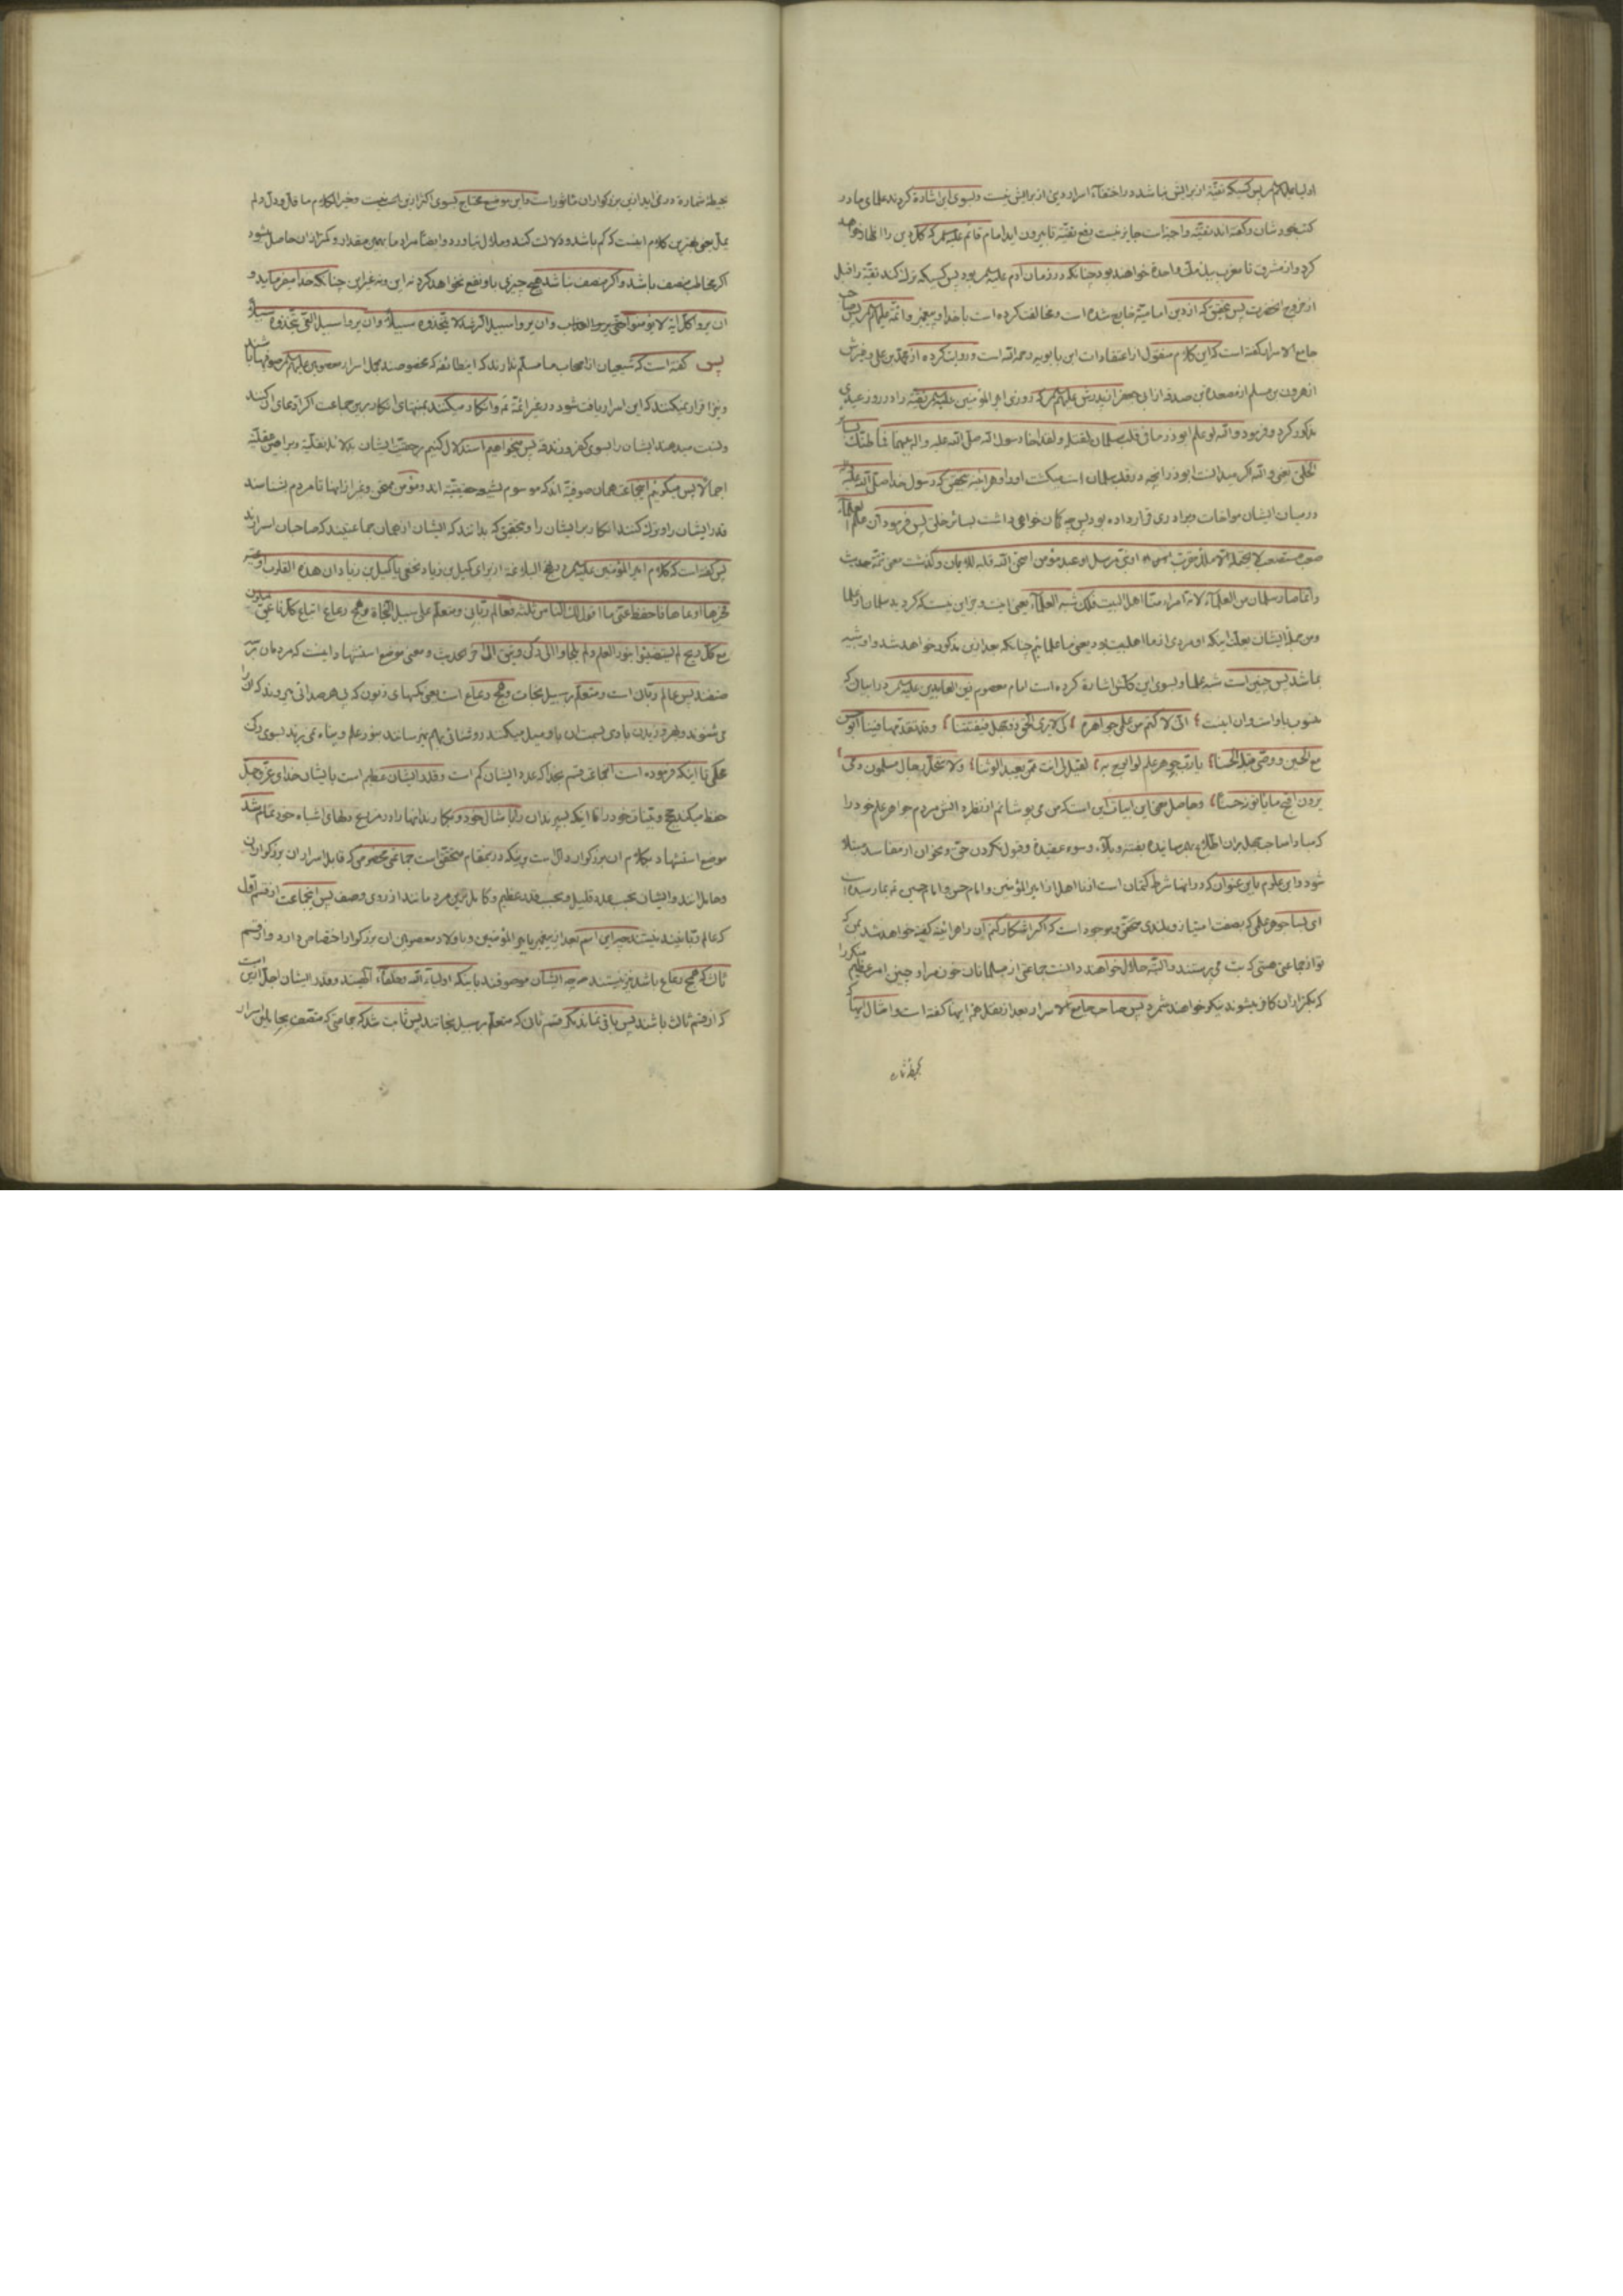 اولیا علیهم السلام پس کسیکه تقیّه از برایش نباشد در اختفاء اسرار دین از برایش نیست و بسوی این اشارة کردند علمای ما در
کتب خودشان و گفته اند تقیّه واجبست جایز نیست رفع تقیّه تا بیرون اید امام قائم علیه السلم که کل دین را اظهار خواهد
کرد و از مشرق تا مغرب بیک ملّت واحدة خواهند بود چنانکه در زمان ادم علیه السلم بود پس کسیکه ترک کند تقیّه را قبل
از خروج انحضرت پس بتحقیق که از دین امامیّه خارج شده است و مخالفت کرده است با خدا و پیغمبر و ائمّه علیهم السلم پس صاحب
جامع الاسرار گفته است که این کلام منقول از اعتقادات ابن بابویه رحمه الله است و روایت کرده از محمد بن علی و غیرش
از هرون بن مسلم از مسعدة بن صدقه از ابی جعفر از پدرش علیهم السلم که روزی امیر المؤمنین علیه السلم تقیّه را در روز عیدی
مذکور کرد و فرمود والله لو علم ابوذر ما فی قلب سلمان لقتله و لقد اخا رسول الله صلّی الله علیه واله بینهما فما ظنّک بسائر
الخلق یعنی والله اگر میدانست ابوذر انچه در قلب سلمان است میکشت او را و هراینه بتحقیق که رسول خدا صلّی الله علیه
در میان ایشان مواخات و برادری قرار داده بود پس چه گمان خواهی داشت بسائر خلق پس فرمود انّ علم العلماء
صعب مستصعب لا یحتمله الا ملک مقرّب او نبیّ مرسل او عبد مؤمن امتحن الله قلبه للایمان و گذشت معنی تتمّه حدیث
و انّما صار سلمان من العلماء لانّه امرء منّا اهل البیت فلذلک نسبه العلماء یعنی اینست و جز این نیست که گردید سلمان از علما
و من جمله ایشان بعلّت اینکه او مردی از ما اهلبیت بود و یعنی ما علمائیم چنانکه بعد ازین مذکور خواهد شد و او شبیه
بما شد پس چنین است شبه علما و بسوی این کتمان اشارة کرده است امام معصوم زین العابدین علیه السلم در ابیاتی که
منسوب باو است و ان اینست انّی لاکتم من علمی جواهره کی لا یری الحقّ ذو جهل فیفتتنا و قد تقدّمها فینا ابو حسن
مع الحسین و وصّی قبله الحسنا یا ربّ جوهر علم لو ابوح به لقیل لی انت ممّن یعبد الوثنا و لاستحلّ رجال مسلمون دمی
یرون اقبح ما یاتونه حسنا و حاصل معنی این ابیات این است که من می پوشانم از نظر دانش مردم جواهر علم خود را
که مبادا صاحب جهل بران اطّلاع بهم رسانیده بفتنه و بلاء و سوء عقیدة و قبول نکردن حق و نحو ان از مفاسد مبتلا
شود و این علوم باین عنوان که در انها شرط کتمان است از نا اهل از امیر المؤمنین و امام حسن و امام حسین بما رسیده است
ای بسا جوهر علمی که بصفت امتیاز و بلندی متحقّق و موجود است که اگر اشکار کنم ان را هراینه گفته خواهد شد بمن که
تو از جماعتی هستی که بت می پرستند و البتّه حلال خواهند دانست جماعتی از مسلمانان خون مرا و چنین امر عظیم منکر را
که بکرّات ان کافر میشوند نیکو خواهند شمرد پس صاحب جامع الاسرار بعد از نقل همه اینها گفته است و امثال اینها که
بحیطه شماره
بحیطه شماره در نمی اید ازین بزرگواران ماثور است و این موضع محتاج بسوی اکثر ازین نیست و خیر الکلام ما قلّ و دلّ و لم
یملّ یعنی بهترین کلام اینست که کم باشد و دلالت کند و ملال نیاورد و ایضا مراد ما بهمین مقدار و کمتر از ان حاصل میشود
اگر مخاطب منصف باشد و اگر منصف نباشد هیچ چیزی باو نفع نخواهد کرد نه این و نه غیر این چنانکه خدا میفرماید و
ان یروا کلّ ایة لا یؤمنوا حتّی یروا العذاب و ان یروا سبیل الرشد لا یتّخذوه سبیلا و ان یروا سبیل الغیّ یتّخذوه سبیلا و
پس گفته است که شیعیان از اصحاب ما مسلّم ندارند که اینطائفه که مخصوصند بحمل اسرار معصومین علیهم السلم صوفیها باشند
و نیز اقرار نمیکنند که این اسرار یافت شود در غیر ائمّه و انکار میکنند بمنتهای انکار برین جماعت اگر ادّعای ان کنند
و نسبت میدهند ایشان را بسوی کفر و زندقه پس میخواهیم استدلال کنیم بر حقیّت ایشان بدلائل نقلیّه و براهین عقلیّه
اجمالا پس میگوئیم اینجماعت همان صوفیّه اند که موسوم بشیعه حقیقیّه اند و مؤمن ممتحن و غیر از اینها تا مردم بشناسند
قدر ایشان را و ترک کنند انکار بر ایشان را و بتحقیق که بدانند که ایشان از همان جماعتیند که صاحبان اسرارند
پس گفته است که کلام امیر المؤمنین علیه السلم در نهج البلاغه از برای کمیل بن زیاد نخعی یا کمیل بن زیاد ان هذه القلوب اوعیه
فخیرها اوعاها فاحفظ عنّی ما اقول لک الناس ثلثه فعالم ربّانی و متعلّم علی سبیل النجاة و همج رعاع اتباع کلّ ناعق یمیلون
مع کلّ ریح لم یستضیئوا بنور العلم و لم یلجاوا الی رکن وثیق الی اخر الحدیث و معنی موضع استشهاد اینست که مردمان بر سه
صنفند پس عالم ربّانی است و متعلّم بر سبیل نجات و همج رعاع است یعنی مگسهای زبون که پی هر صدائی میروند که انرا
می شنوند و بهر وزیدن بادی بسمت ان باد میل میکنند روشنائی بهم نمیرسانند بنور علم و پناه نمی برند بسوی رکن
محکمی تا اینکه فرموده است انجماعت قسم بخدا که عدد ایشان کم است و قدر ایشان عظیم است بایشان خدای عزّ و جلّ
حفظ میکند حجج و بیّنات خود را تا اینکه بسپرند ان را بامثال خود و بکارند انها را در مزارع دلهای اشباه خود تمام شد
موضع استشهاد بکلام ان بزرگوار و دالّ است بر اینکه درینمقام متحقّق است جماعتی مخصوصی که قابل اسرار ان بزرگواران
و حامل انند و ایشان بحسب عدد قلیل و بحسب قدر عظیم و کامل ترین مردمانند از روی وصف پس اینجماعت از قسم اوّل
که عالم ربّانیند نیستند چه این اسم بعد از پیغمبر بامیر المؤمنین و باولاد معصومین ان بزرگوار اختصاص دارد و از قسم
ثالث که همج رعاع باشد نیز نیستند چه ایشان موصوفند باینکه اولیاء الله و خلفاء الهیند و قدر ایشان اجلّ ازین است
که از قسم ثالث باشند پس باقی نماند مگر قسم ثانی که متعلّم بر سبیل نجاتند پس ثابت شد که جماعتی که متّصف بحاملین اسرار